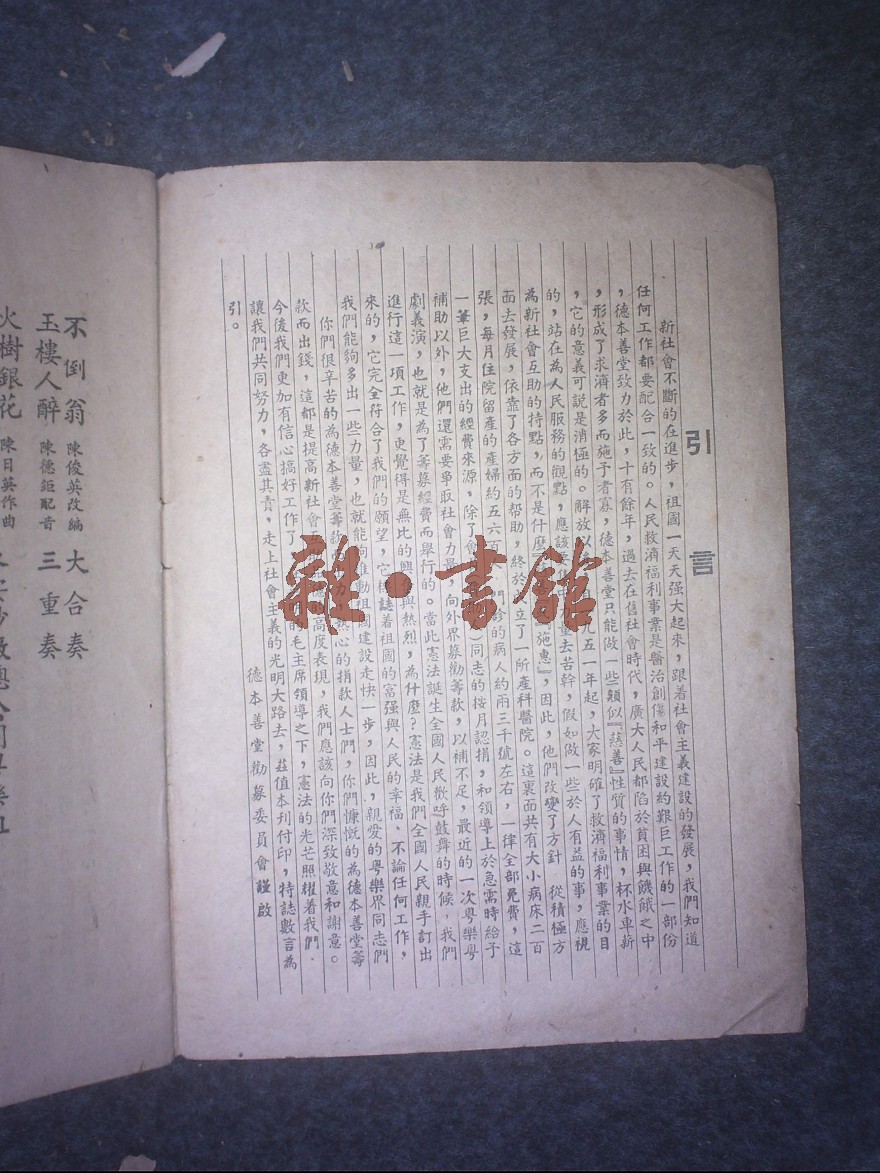 引言
新社會不斷的在進步，祖國一天天强大起來，跟着社會主義建設的發展，我們知道
任何工作都要配合一致的。人民救濟福利事業是醫治創傷和平建設約艱巨工作的一部份
，德本善堂致力於此，十有餘年，過去在舊社會時代，廣大人民都陷於貧困與饑餓之中
，形成了求濟者多而施予者寡，德本善堂只能做一些類似『慈善』性質的事情，杯水車薪
，它的意義可說是消極的。解放以 九五一年起，大家明確了救濟福利事業的目
的，站在為人民服務的觀點，應該 量去苦幹，假如做一些於人有益的事，應視
為新社會互助的特點，而不是什麼 施惠』，因此，他們改變了方針 從積極方
面去發展，依靠了各方面的帮助，終於 立了一所產科醫院。這裏面共有大小病床二百
張，每月住院留產的產婦約五六百 門診的病人約兩三千號左右，一律全部免費，這
一筆巨大支出的經費來源，除了會 同志的按月認捐，和領導上於急需時給予
補助以外，他們還需要爭取社會力 向外界募勸籌款，以補不足，最近的一次粵樂粵
劇義演，也就是為了籌募經費而舉行的。當此憲法誕生全國人民歡呼鼓舞的時候，我們
進行這一項工作，更覺得是無比的興 與熱烈，為什麼？憲法是我們全國人民親手訂出
來的，它完全符合了我們的願望，它標誌着祖國的富强與人民的幸福，不論任何工作，
我們能夠多出一些力量，也就能夠推動祖國建設走快一步，因此，親愛的粵樂界同志們
你們很辛苦的為德本善堂籌 熱心的捐款人士們，你們慷慨的為德本善堂籌
款而出錢，這都是提高新社會 的高度表現，我們應該向你們深致敬意和謝意。
今後我們更加有信心搞好工作了， 的毛主席領導之下，憲法的光芒照耀着我們，
讓我們共同努力，各盡其責，走上社會主義的光明大路去，茲值本刊付印，特誌數言為
引。
德本善堂勸募委員會謹啟
不倒翁 陳俊英改編 大合奏
玉樓人醉 陳德鉅配音 三重奏
火樹銀花 陳日英作曲
雜·書館